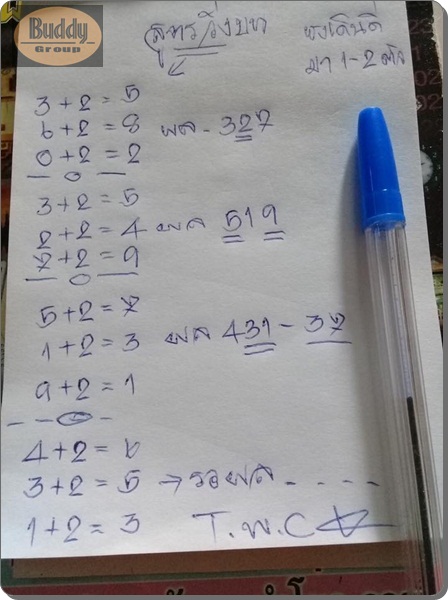 Buddy
Group
สูตรวิ่งบน
ยังเดินดี
มา 1-2 ตัว
3+2=5
6+2=8 ผล - 327
0+2=2
3+2=5
2+2=4 ผล 519
7+2=9
5+2=7
1+2=3 ผล 431 - 37
9+2=1
4+2=6
3+2=5 → รอผล - - - -
1+2=3 T.W.C